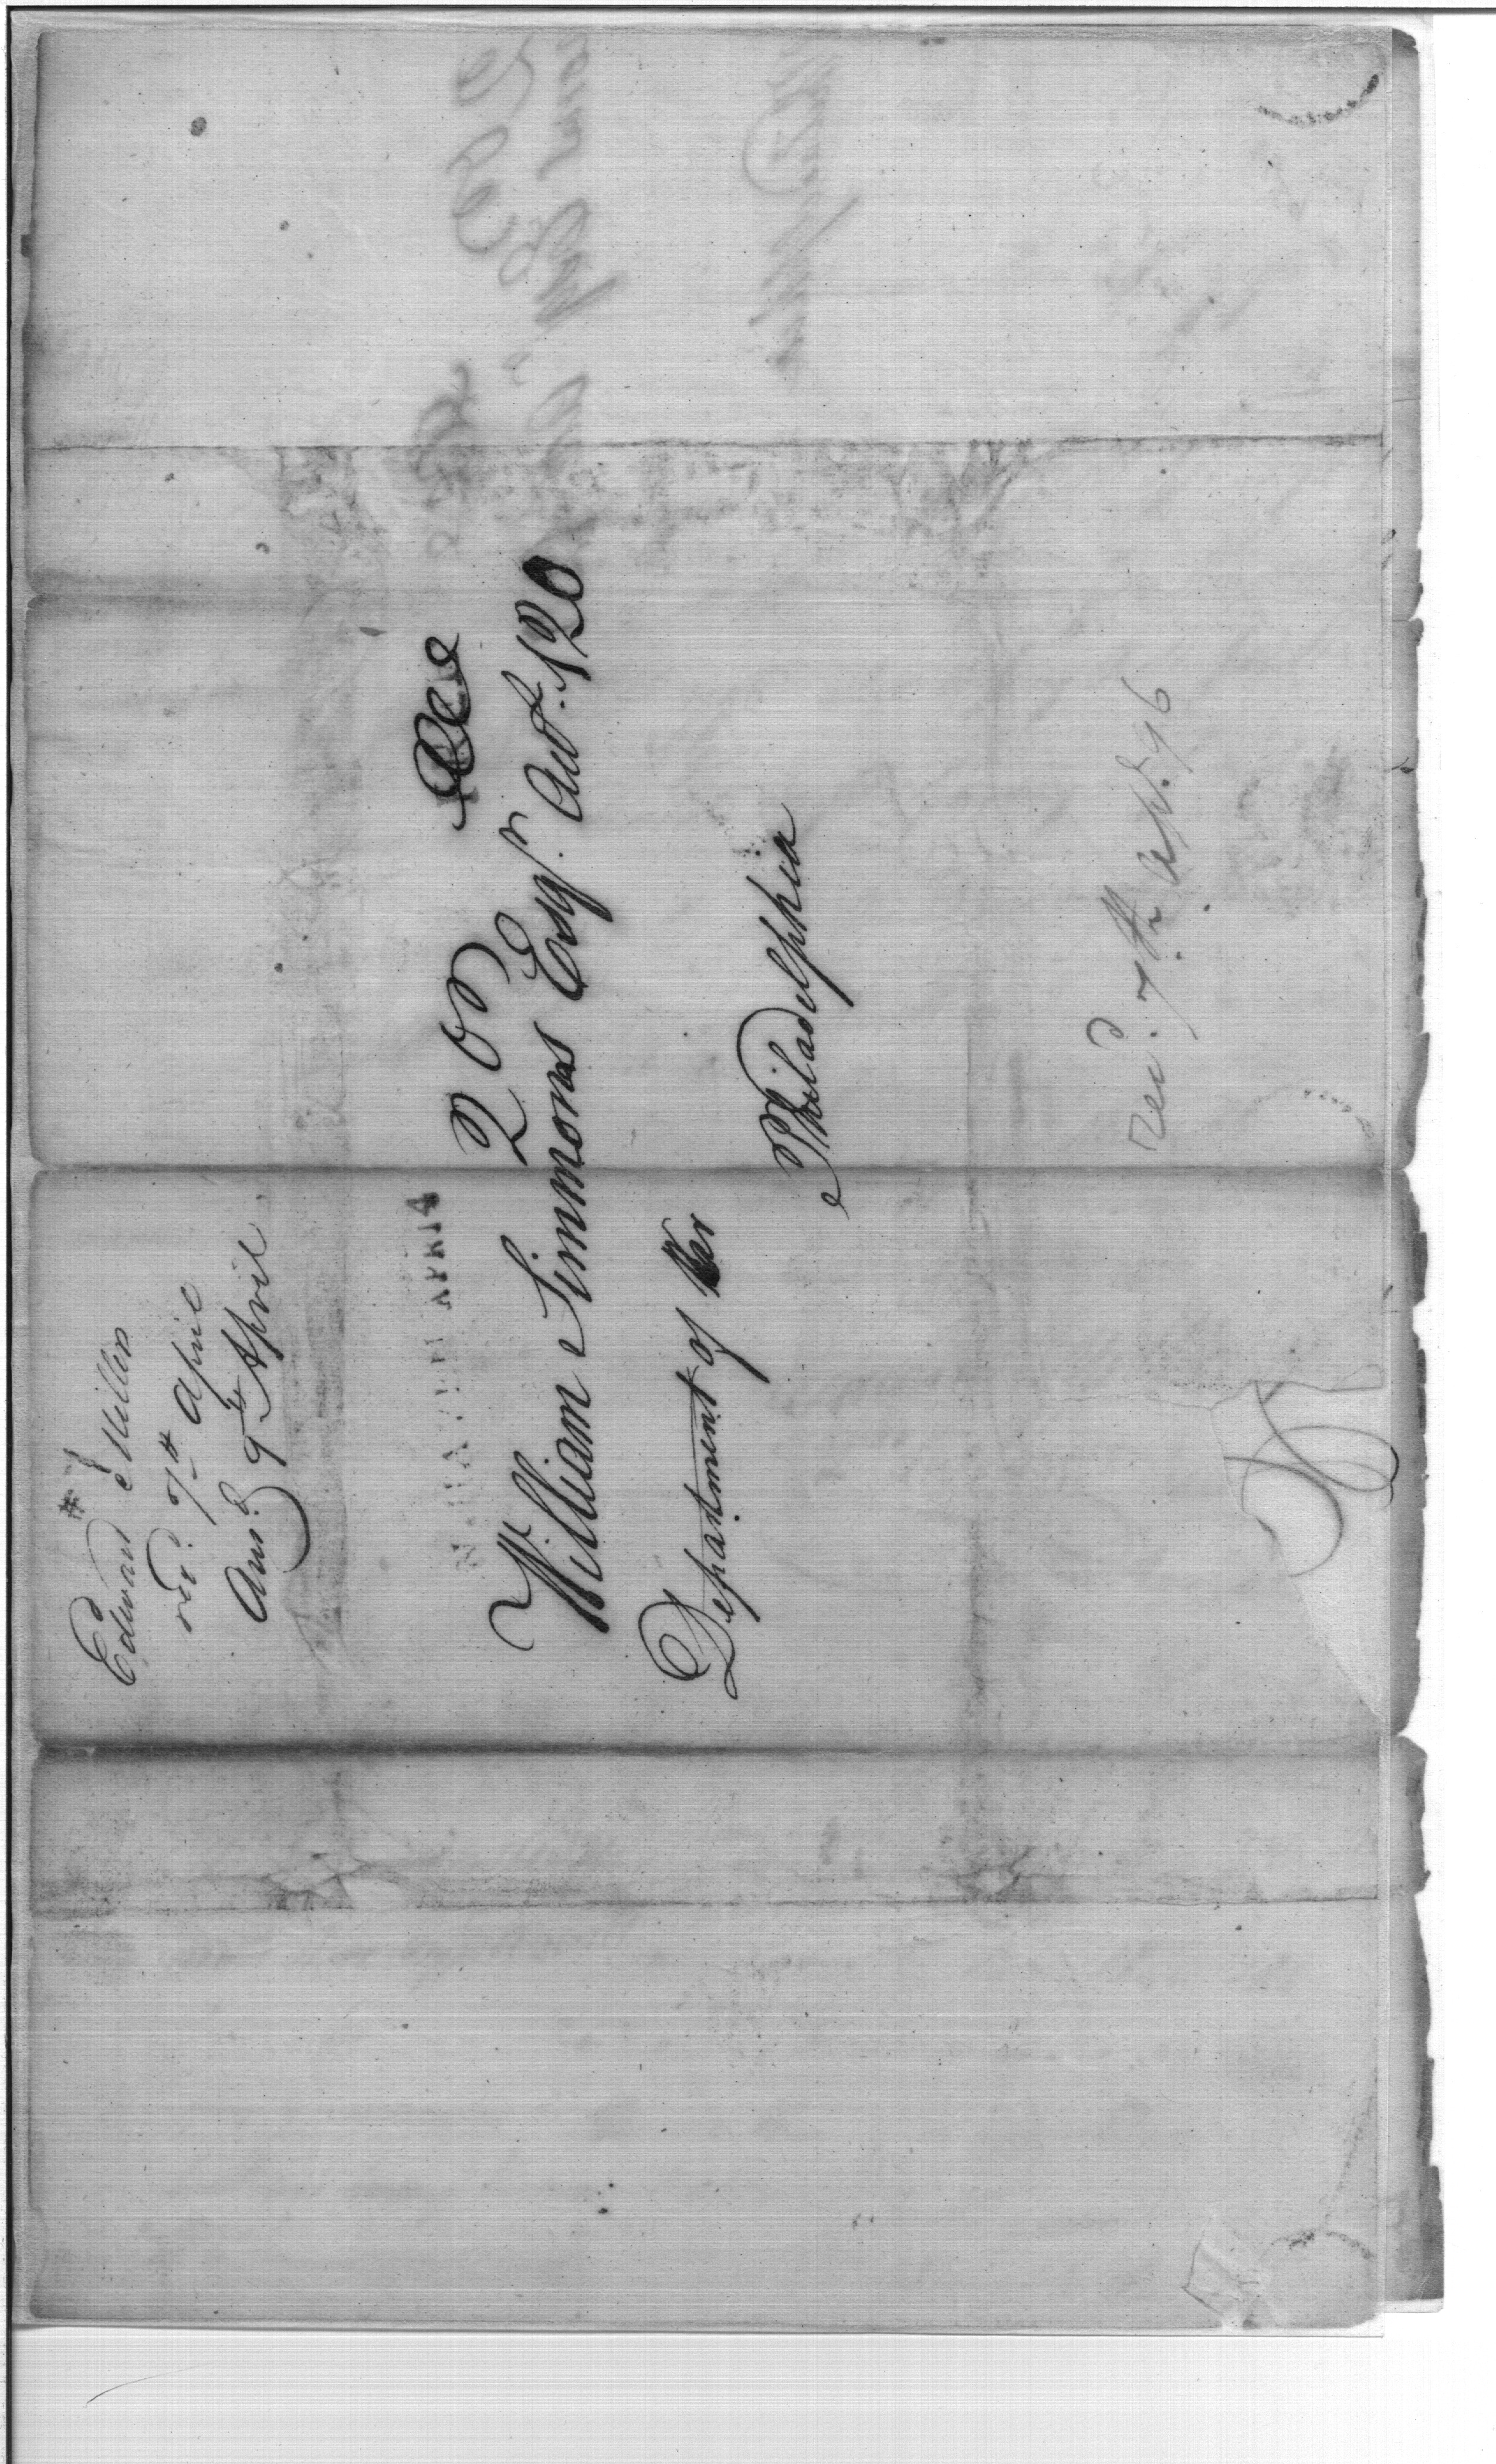 Edward Miller
recd. 7th April
Ansd. 9th April
APRIL 4
2 oz
William Simmons Esqr. Acct. 120
Department of War
Philadelphia
Recd. 7th Apl. 96